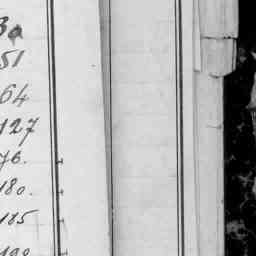 30
51
64
127
76.
180.
185
190